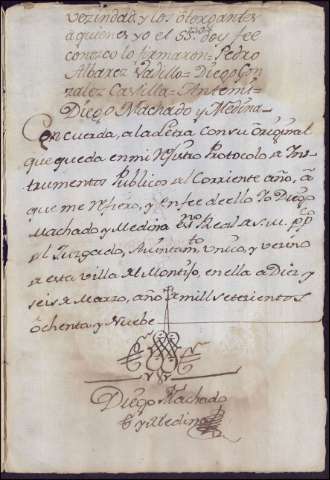 vezindad, y los otorgantes
a quienes yo el ss.no doy fee
conozco lo firmaron= Pedro
Albarez Vadillo= Diego Gon
zalez Castilla= Antemi=
Diego Machado y Medina=
Concuerda, a la letra con su original
que queda en mi rejistro Protocolo de Ins-
trumentos Publicos del Corriente año, a
que me refiero, y en fee de ello Yo Diego
Machado y Medina es.no Real de S.M. pp.co
del Juzgado, Aiuntam.to unico, y vezino
de esta villa del Montijo, en ella a Diez y
seis de Marzo, año de mill setezientos
ochenta y Nuebe
Diego Machado
y Medina